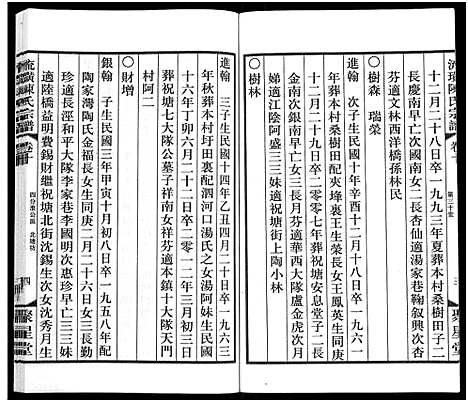 流璜陳氏宗譜
卷十
第三十世
三
聚星堂
十二月二十八日卒一九九三年夏葬本村桑田子二
樹森 瑞榮
芬適文林西洋橋孫林民
樹森 瑞榮
民國十年辛酉十二月二十日卒一九六一年
十二月二十九日葬本村桑樹田配夾埄裏王生榮長女王鳳英生同庚
二月二十九日卒二〇〇七年葬祝塘安息堂子二長
金南次銀南早亡女三長月芬適華西大隊盧金虎次月
娣適江陰阿盛三三妹適祝塘街上陶小林
樹林
流璜陳氏宗譜
卷十
四分港公派 北塘坊
四
聚星堂
進翰 三子生民國十四年乙丑四月二十日卒一九六三
年秋葬本村圩田裏配泗河口湯氏之女湯阿妹生民國
十六年丁卯六月二十二日卒二〇一二年三月初三日
葬祝塘七大隊公墓子祥南女祥芬適本村十大隊天門
村阿二
財增
銀翰 子生民國三年甲寅十月初八日卒一九五八年配
陶家灣陶氏金福長女生同庚二月二十六日女三長勤
珍適長涇和平大隊李家巷李國明次惠珍早亡三三妹
適陸橋益明費錫財繼配祝塘北街沈錫生次女沈秀月生